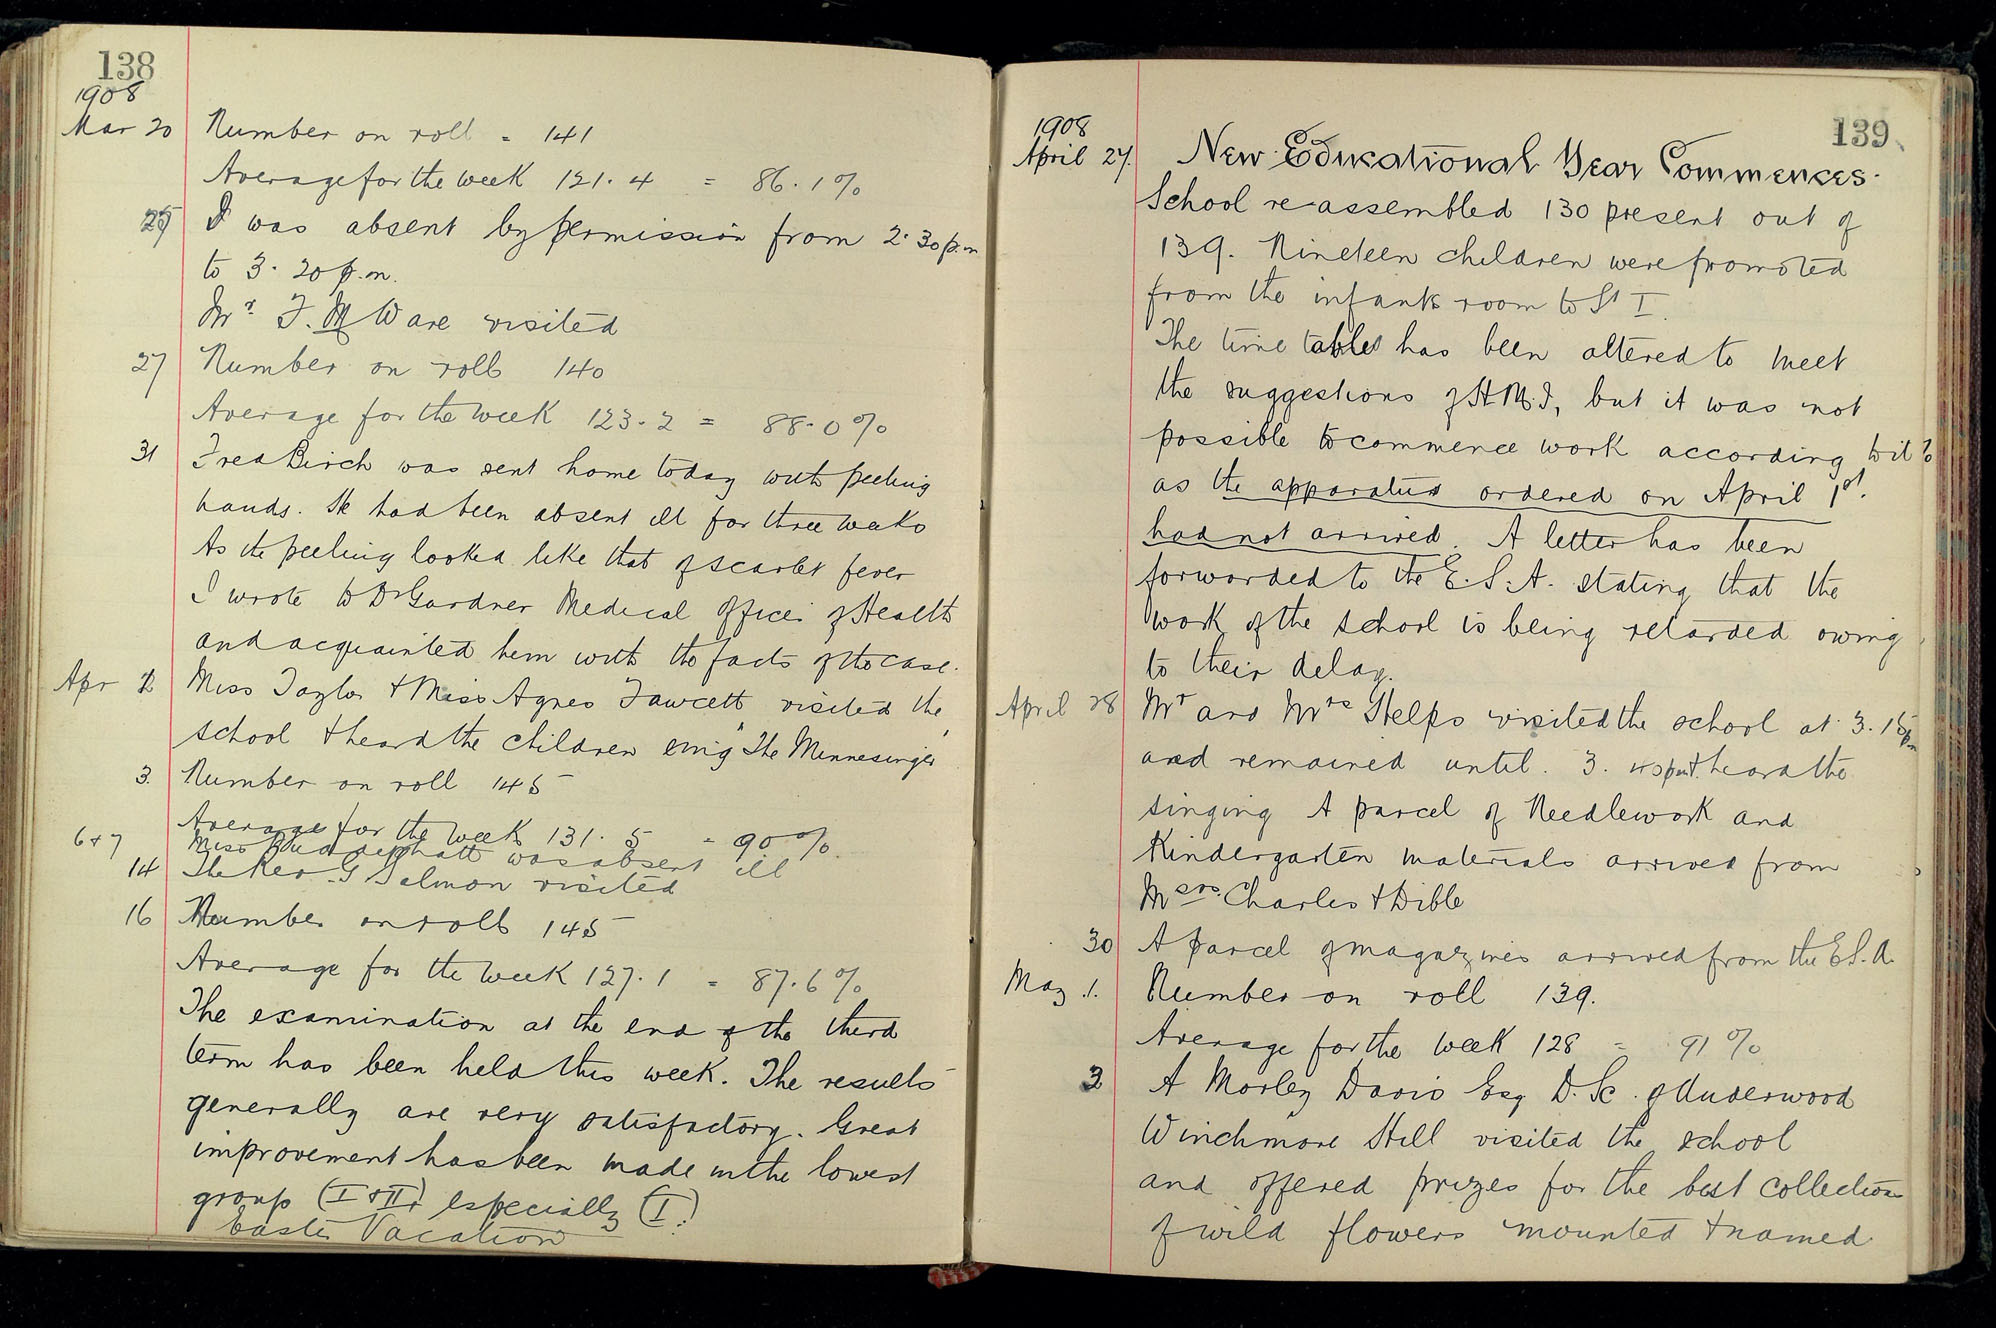 138
1908
Mar 20 Number on roll = 141
Average for the week 121.4 = 86.1%
25 I was absent by permission from 2.30 p.m
to 3.20 p.m.
Mr F. M Ware visited
27 Number on roll 140
Average for the week 123.2 = 88.0%
31 Fred Birch was sent home today with peeling
hands. He had been absent ill for three weeks
As the peeling looked like that of scarlet fever
I wrote to Dr Gardner Medical Officer of Health
and acquainted him with the facts of the case.
Apr 2 Miss Taylor & Miss Agnes Fawcett visited the
school & heard the children sing "The Minnesinger"
3. Number on roll 145
Average for the week 131.5 = 90%
6 & 7 Miss was absent ill
14 The Rev. G Salmon visited
16 Number on roll 145
Average for the week 127.1 = 87.6%
The examination at the end of the third
term has been held this week. The results
generally are very satisfactory. Great
improvement has been made in the lowest
group (I & II) especially (I.)
Easter Vacation
139
1908
April 27. New Educational Year Commences.
School re-assembled 130 present out of
139. Nineteen children were promoted
from the infants room to St I.
The time table has been altered to meet
the suggestions of H.M.I, but it was not
possible to commence work according to it
as the apparatus ordered on April 1st.
had not arrived. A letter has been
forwarded to the E.S.A. stating that the
work of the school is being retarded owing
to their delay.
April 28 Mr and Mrs Helps visited the school at 3.15 pm
and remained until. 3. & heard the
singing A parcel of Needlework and
Kindergarten materials arrived from
Msrs. Charles & Dible
30 A parcel of magazines arrived from the E.S.A.
May .1. Number on roll 139.
Average for the week 128 = 91%
A Morley Davis Esq D.Sc. of Underwood
Winchmore Hill visited the school
and offered prizes for the best collection
of wild flowers mounted & named